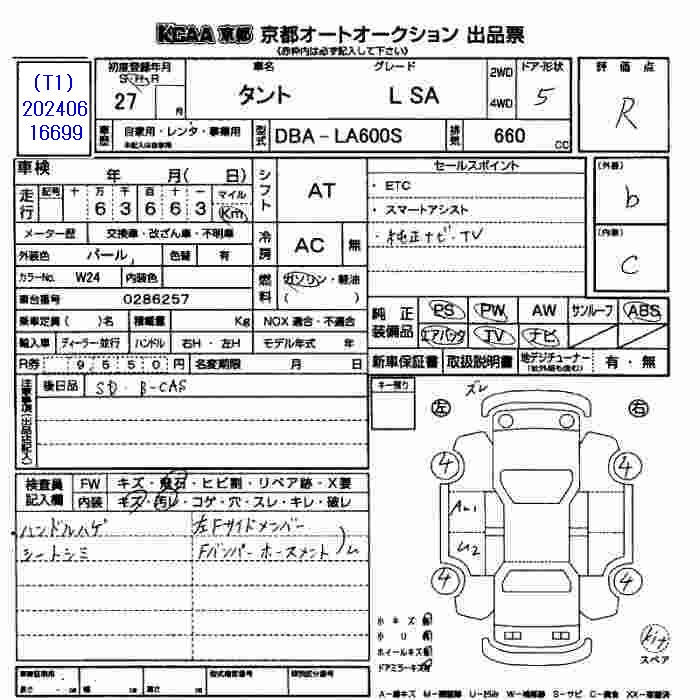 KCAA 京都 京都オートオークション 出品票
(赤枠内は必ず記入して下さい)
(T1)
202406
16699
初度登録年月
S・H・R
27 月
車名
タント
グレード
L SA
2WD
4WD
ドア・形状
5
評価点
R
車歴
自家用・レンタ・事業用
未記入は自家用
型式
DBA-LA600S
排気
660 cc
車検 年 月( 日)
走行
記号 十 万 千 百 十 一 マイル
6 3 6 6 3 Km
シフト
AT
セールスポイント
・ ETC
・ スマートアシスト
・ 純正ナビ・TV
(外装)
b
(内装)
C
メーター歴 交換車・改ざん車・不明車
外装色 パール 色替 有
冷房
AC 無
カラーNo. W24 内装色
燃料
ガソリン・軽油
( )
車台番号 0286257
乗車定員( )名 積載量 Kg NOX 適合・不適合
輸入車 ディーラー・並行 ハンドル 右H・左H モデル年式 年
R券 9550円 名変期限 月 日
純正装備品
PS PW AW サンルーフ ABS
エアバック TV ナビ
新車保証書 取扱説明書 地デジチューナー 有・無
注意事項(出品店記入)
後日品 SD・B-CAS
キー預り
ズレ
左 右
検査員記入欄
FW キズ・飛石・ヒビ割・リペア跡・X要
内装 キズ・汚レ・コゲ・穴・スレ・キレ・破レ
ハンドルハゲ
シートシミ
左Fサイドメンバー
Fバンパーホースメント
4 4
A1
U2
4 4
小キズ 有
小凹 有
ホイールキズ 有
ドアミラーキズ 有
kit
スペア
車検証有用
長さ 幅 高さ
型式指定番号
類別区分番号